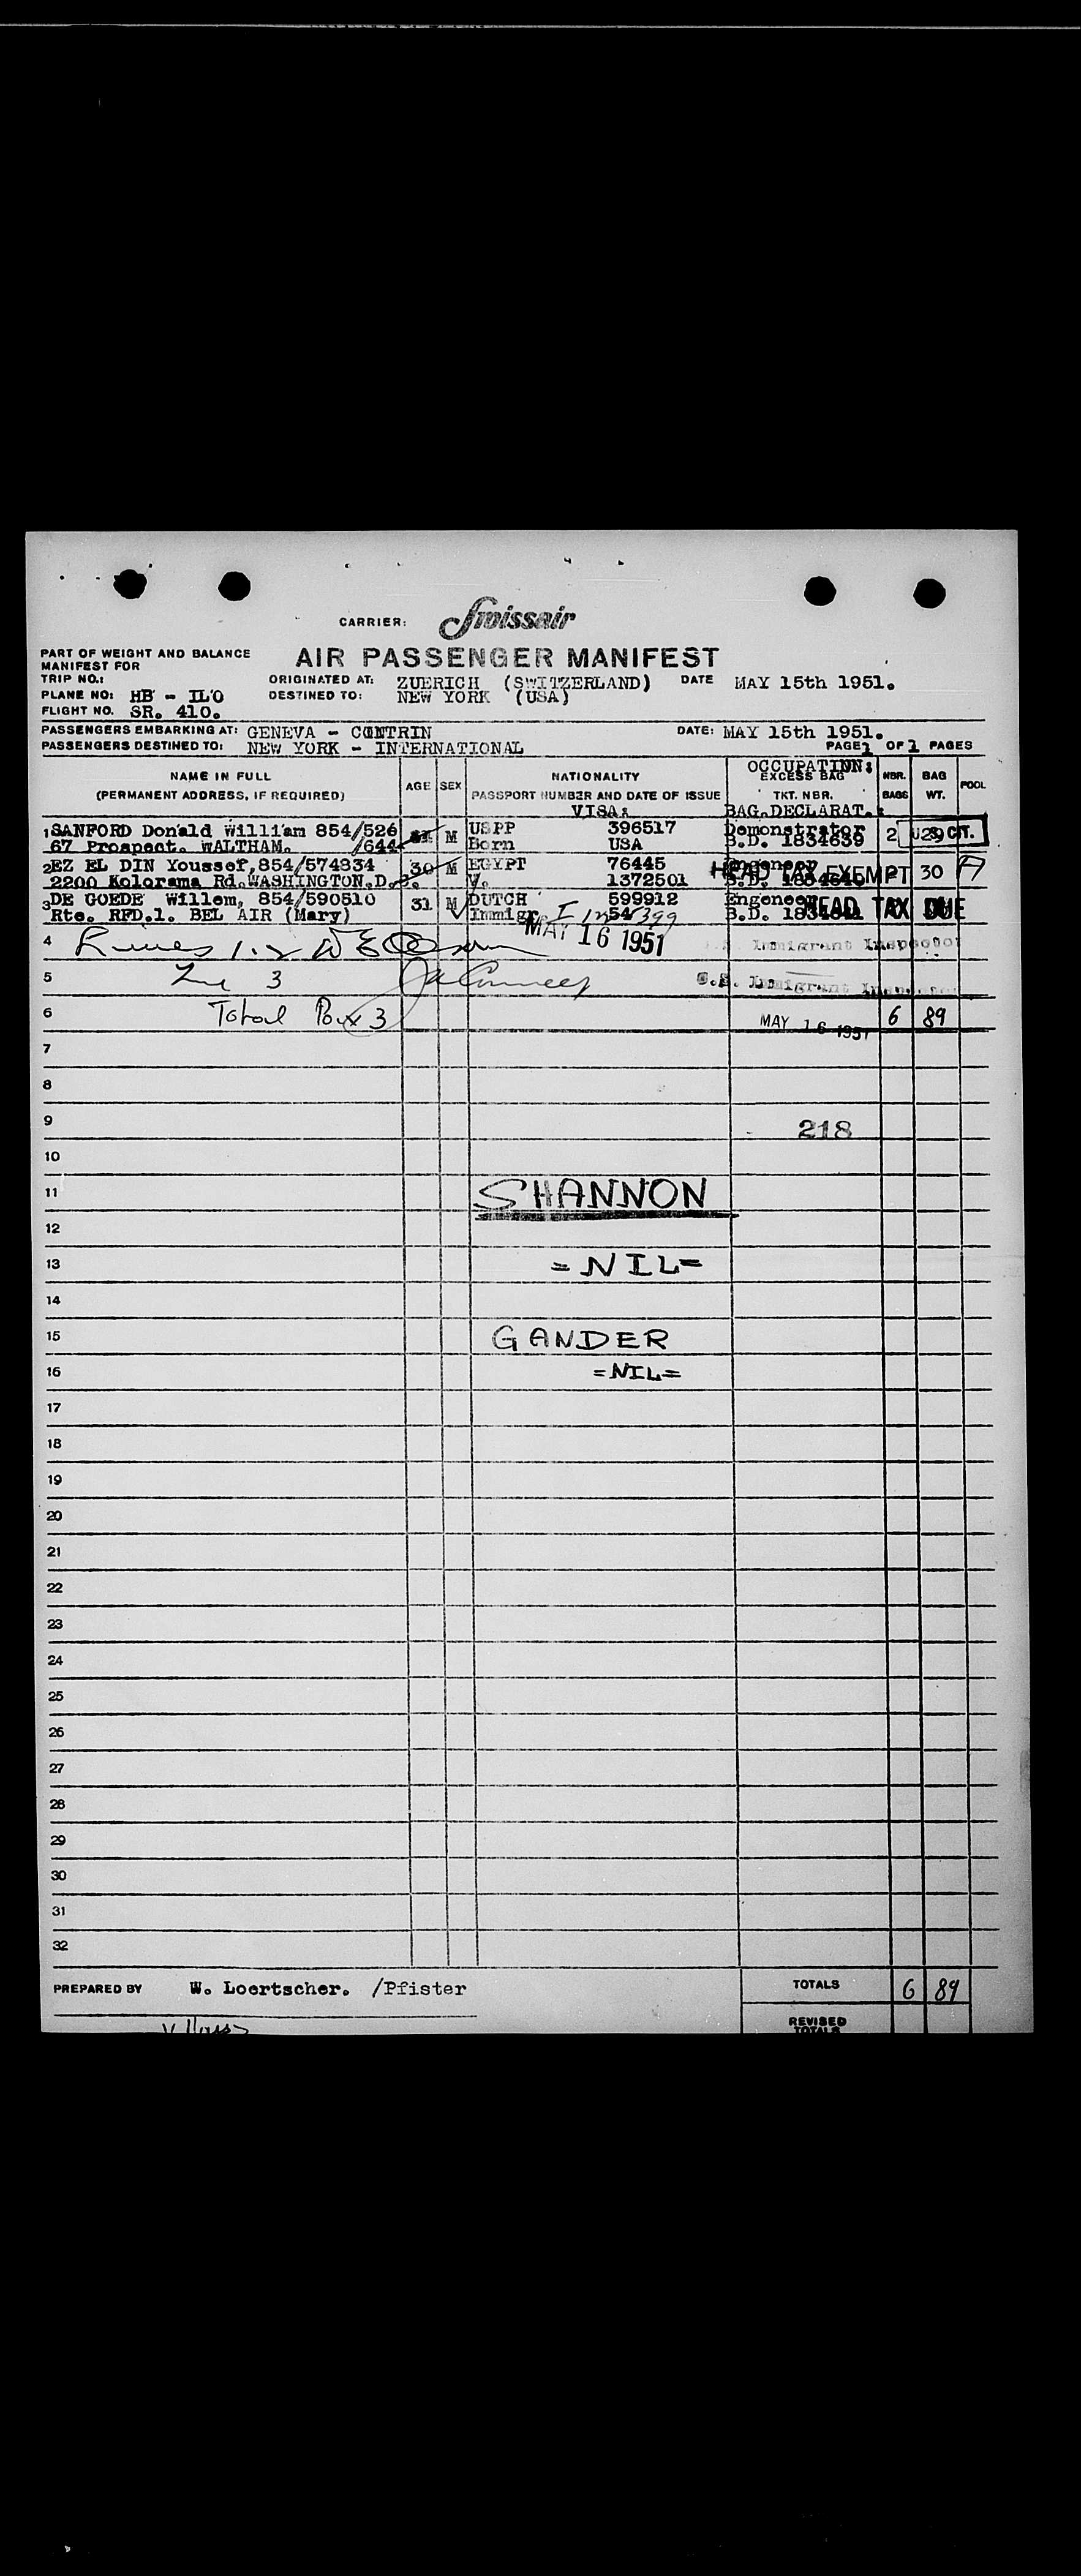 CARRIER: Swissair
PART OF WEIGHT AND BALANCE
MANIFEST FOR
AIR PASSENGER MANIFEST
TRIP NO.:
ORIGINATED AT: ZUERICH (SWITZERLAND) DATE MAY 15th 1951.
PLANE NO: HB - ILO DESTINED TO: NEW YORK (USA)
FLIGHT NO. SR. 410.
PASSENGERS EMBARKING AT: GENEVA - COINTRIN DATE: MAY 15th 1951.
PASSENGERS DESTINED TO: NEW YORK - INTERNATIONAL PAGE 1 OF 1 PAGES
NAME IN FULL
(PERMANENT ADDRESS, IF REQUIRED)
AGE SEX
NATIONALITY
PASSPORT NUMBER AND DATE OF ISSUE
VISA:
OCCUPATION:
EXCESS BAG
TKT. NBR.
BAG.DECLARAT.:
NBR.
BAGS
BAG
WT.
POOL
1 SANFORD Donald William 854/526 M USPP 396517 Demonstrator 2 29 U.S. CIT.
67 Prospect. WALTHAM. /644 Born USA B.D. 1834639
2 EZ EL DIN Youssef, 854/574834 30 M EGYPT 76445 Engeneer 30
2200 Kolorama Rd. WASHINGTON.D. V. 1372501 B.D. 1834640 HEAD TAX EXEMPT
3 DE GOEDE Willem, 854/590510 31 M DUTCH 599912 Engeneer
Rte. RFD.1. BEL AIR (Mary) Immigr. B.D. HEAD TAX DUE
4 Lines 1-2 MAY 16 1951 Immigrant Inspector
5 3 U.S. Immigrant Inspector
6 Total Pax 3 MAY 16 1951 6 89
7
8
9 218
10
11 SHANNON
12
13 =NIL=
14
15 GANDER
16 =NIL=
17
18
19
20
21
22
23
24
25
26
27
28
29
30
31
32
PREPARED BY W. Loertscher. /Pfister TOTALS 6 89
REVISED
TOTALS